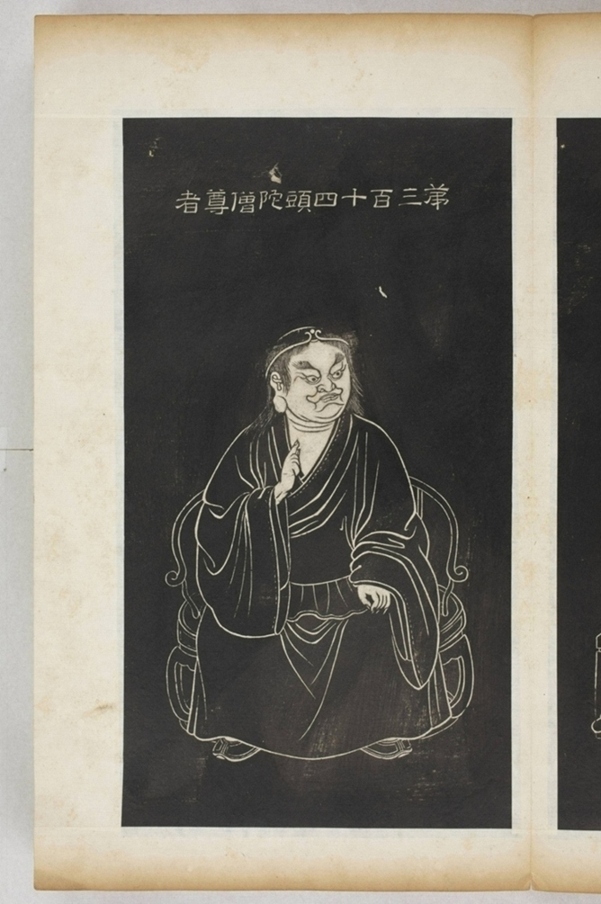 苐三百十四頭陀僧尊者